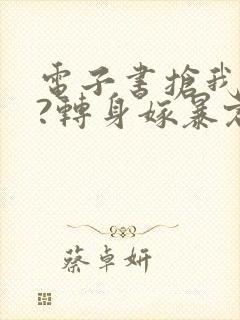 電子書搶我
?轉身嫁暴
蔡卓妍